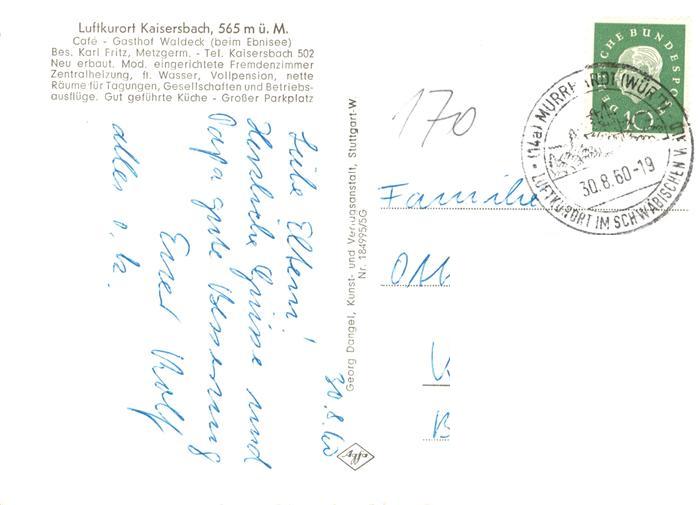 Luftkurort Kaisersbach, 565 m ü. M.
Café - Gasthof Waldeck (beim Ebnisee)
Bes. Karl Fritz, Metzgerm. - Tel. Kaisersbach 502
Neu erbaut. Mod. eingerichtete Fremdenzimmer
Zentralheizung, fl. Wasser, Vollpension, nette
Räume für Tagungen, Gesellschaften und Betriebs-
ausflüge. Gut geführte Küche - Großer Parkplatz
30.8.60
Liebe Eltern!
Herzliche Grüsse und
Papa gute Besserung
Euer Rolf
alles o.k.
Georg Dangel, Kunst- und Verlagsanstalt, Stuttgart-W
Nr. 184995/5G
170
Familie
10
(14a) MURRHARDT (WÜRTT)
30.8.60-19
LUFTKURORT IM SCHWÄBISCHEN WALD